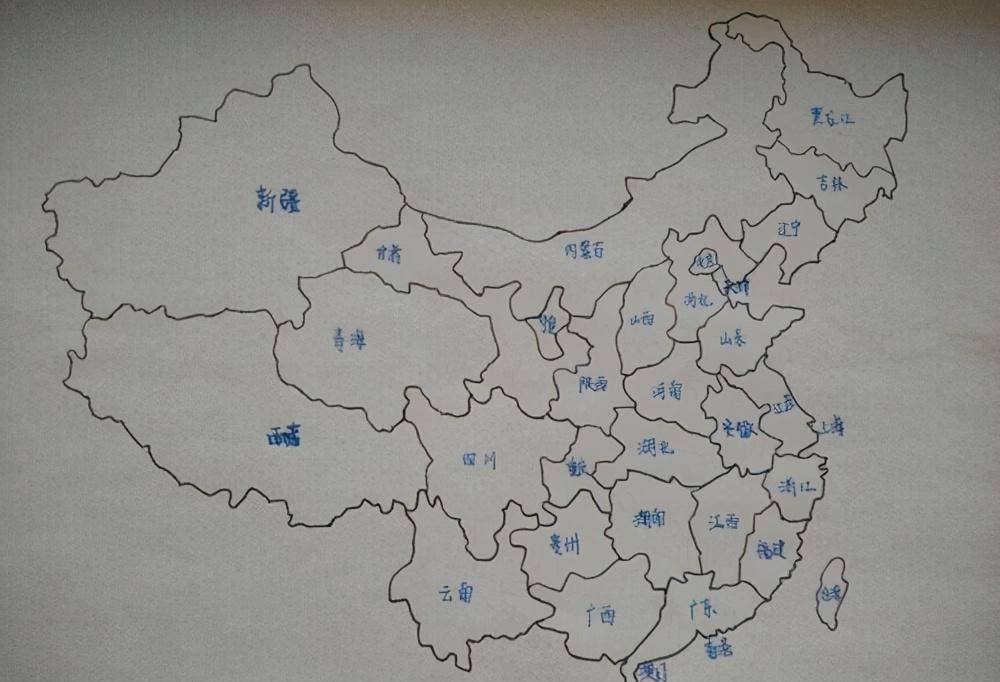 黑龙江
吉林
辽宁
新疆
内蒙古
甘肃
北京
天津
河北
山西
山东
青海
陕西
河南
江苏
安徽
上海
西藏
四川
重庆
湖北
浙江
湖南
江西
福建
贵州
云南
广西
广东
台湾
香港
澳门